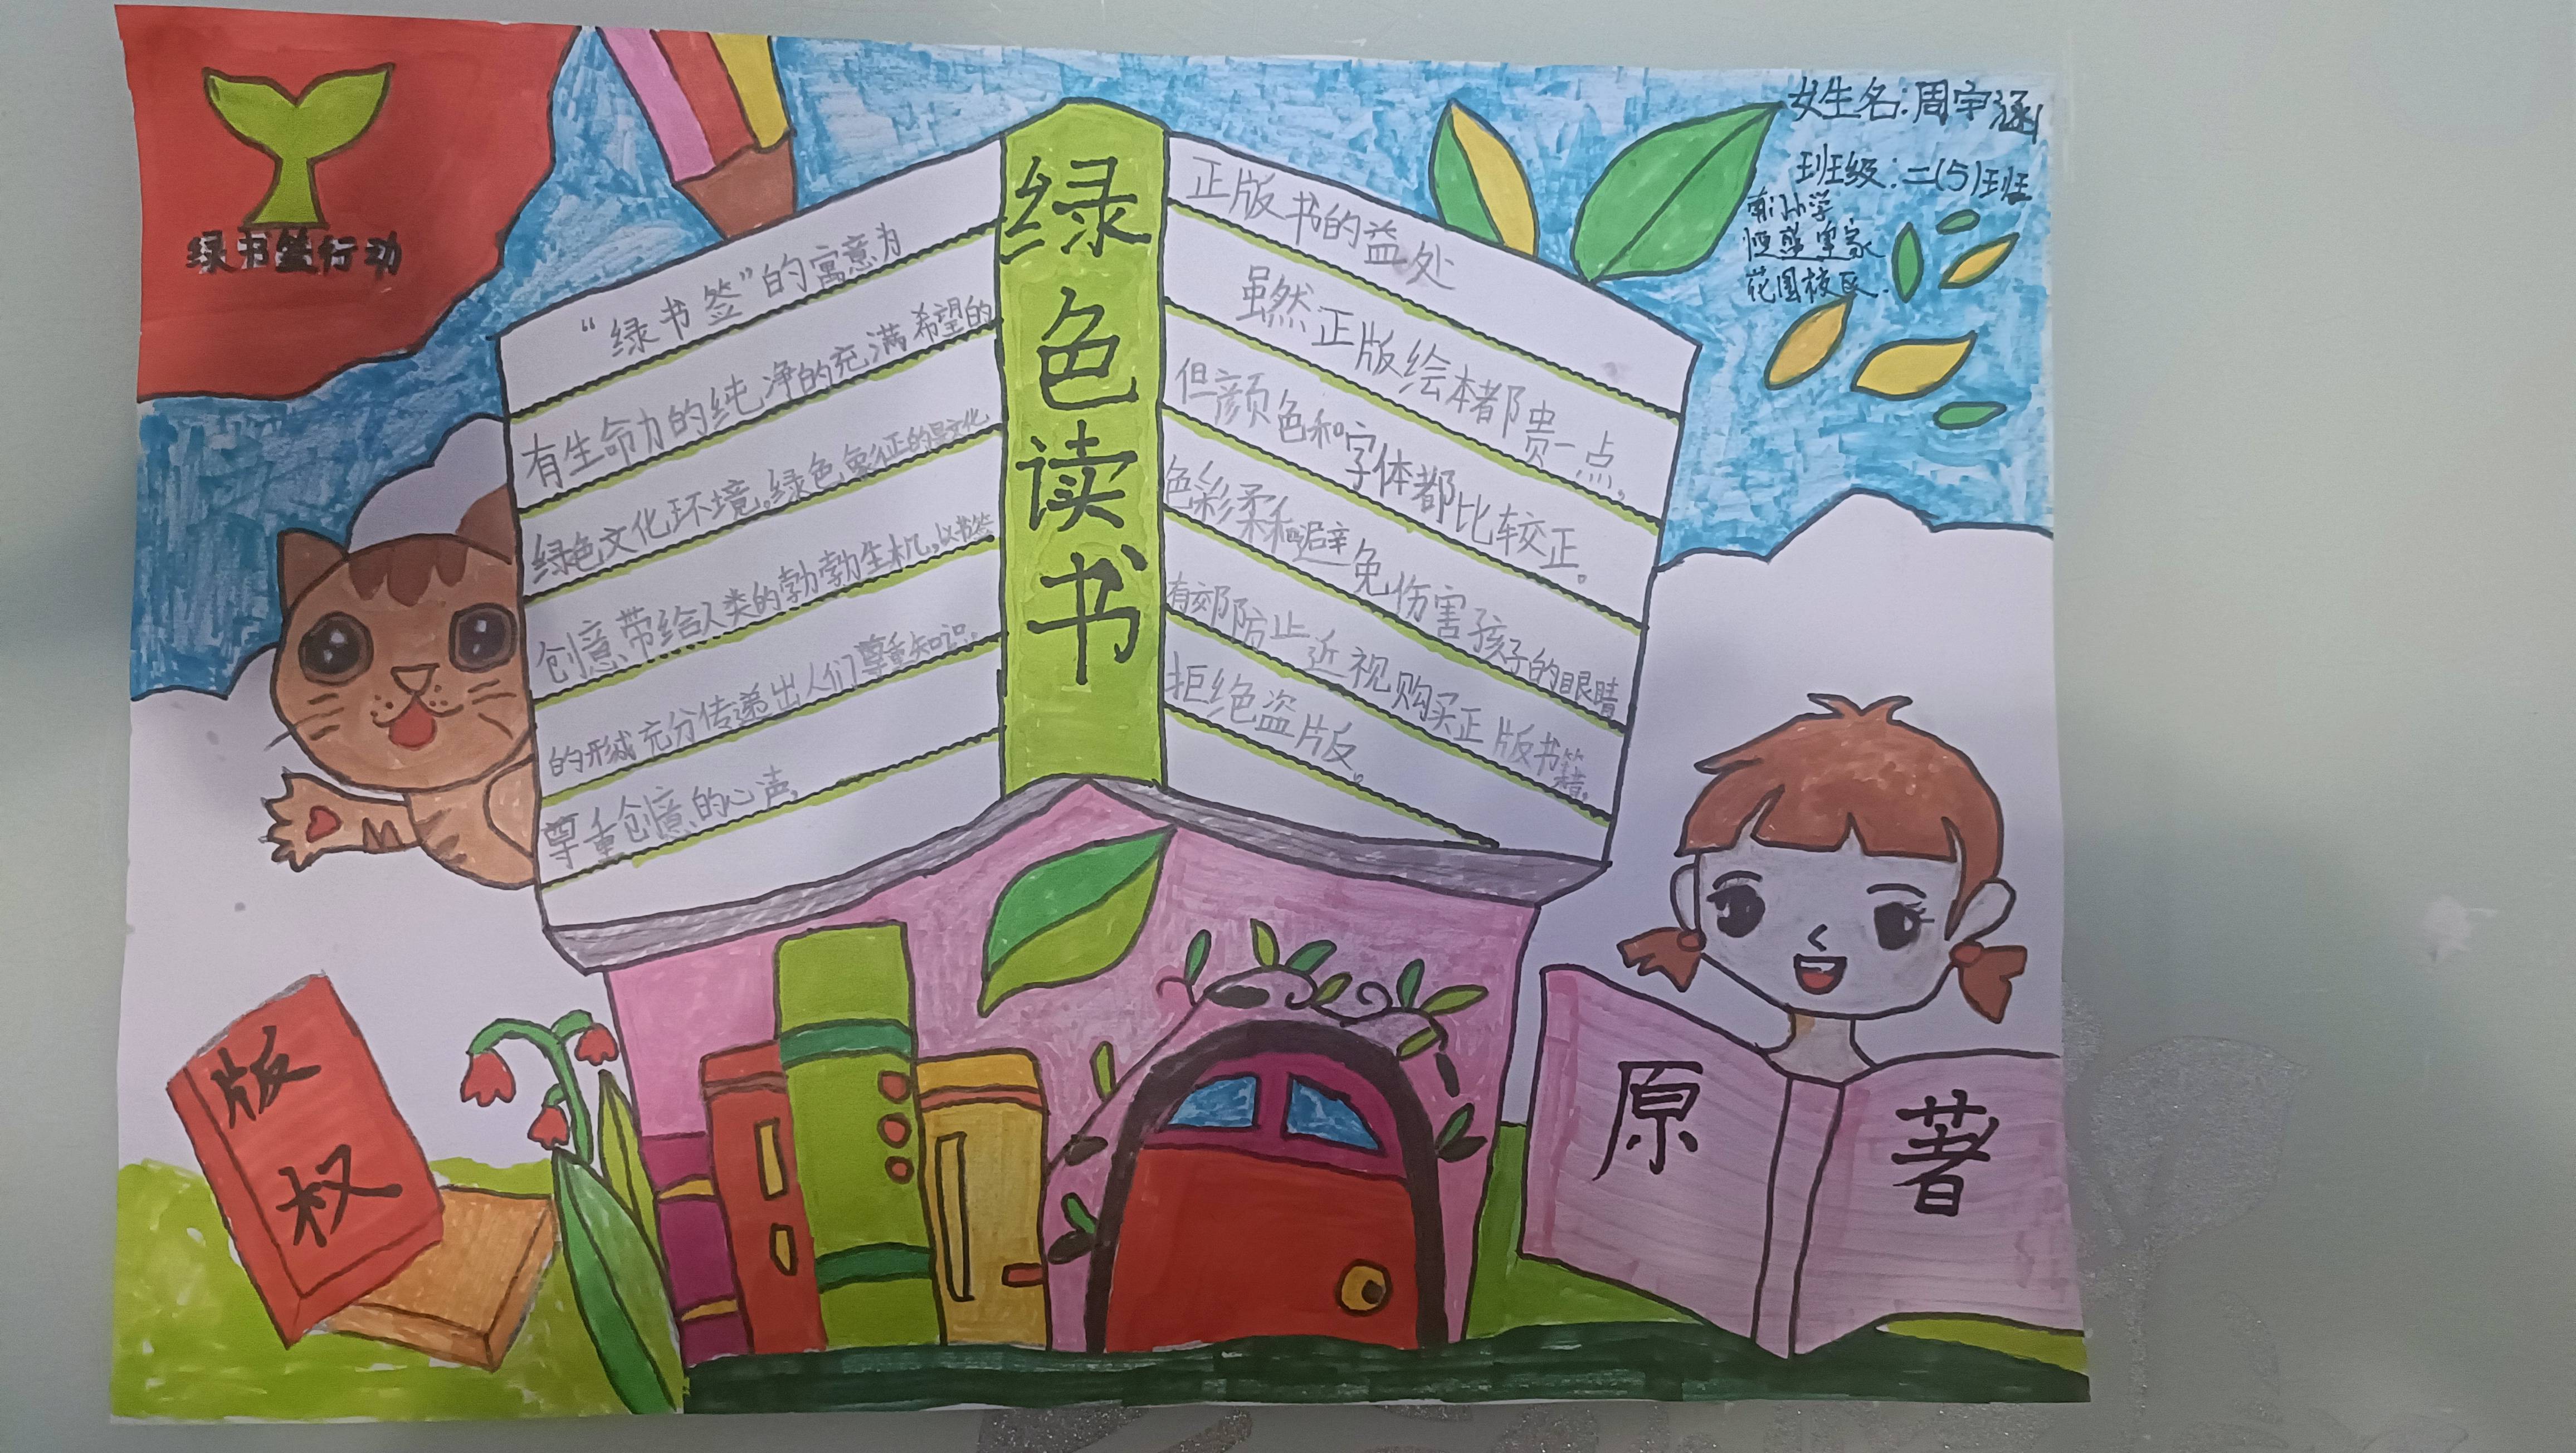 绿书签行动
女生名：周宇涵
班级：二(5)班
花园校区.
绿色读书
“绿书签”的寓意为
有生命力的纯净的充满希望的
绿色文化环境。绿色象征的是文化
创意带给人类的勃勃生机。以书签
的形式充分传递出人们尊重知识.
尊重创意的心声，
正版书的益处
虽然正版绘本都贵一点，
但颜色和字体都比较正。
色彩柔和避免伤害孩子的眼睛
有效防止近视购买正版书籍，
拒绝盗版。
版权
原著